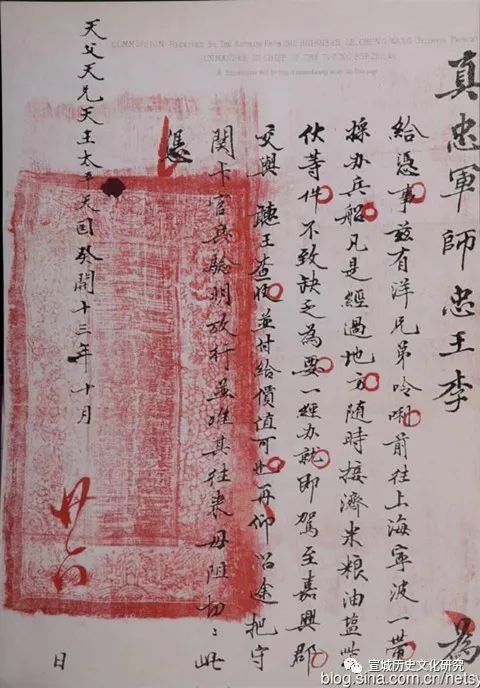 COMMISSION Received By The Author From HIS HIGHNESS LE, CHUNG-WANG (Faithful Prince)
COMMANDER IN CHIEF OF THE TI-PING FORCES
A Translation will be found immediately after the Title page
真忠軍師忠王李 為
給憑事茲有洋兄弟呤唎前往上海寧波一帶
採办兵船凡是經過地方随時接濟米粮油塩柴
伙等件不致缺乏為要一經办就即駕至嘉興郡
交與 聽王查收並付給價值可也再仰沿途把守
関卡官兵驗明放行並准其往来毋阻切々此
憑
天父天兄天王太平天囯癸開十三年十月 日
宣城历史文化研究
blog.sina.com.cn/netsy